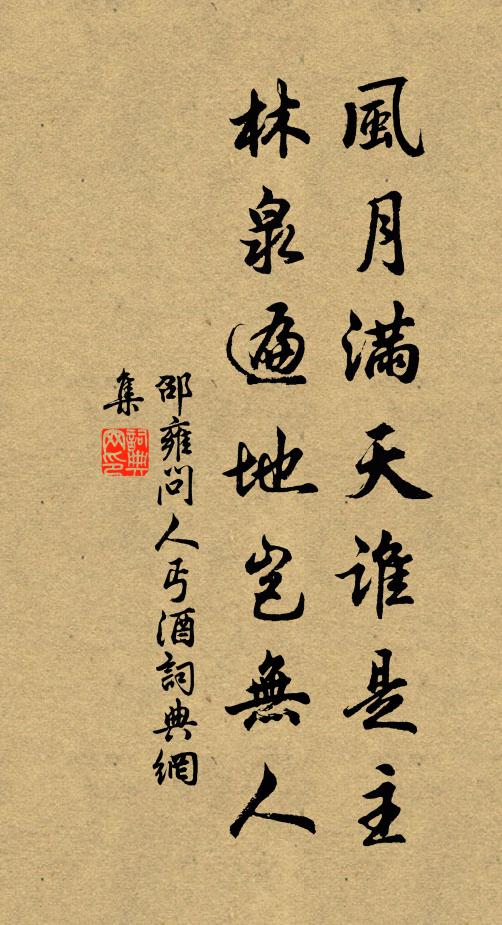 風月滿天誰是主
林泉遍地豈無人
邵雍問人丐酒詞典網
集
詞典
网印